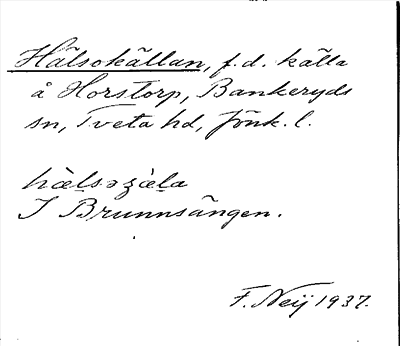 Hälsokällan, f.d. källa
å Horstorp, Bankeryds
sn, Tveta hd, Jönk. l.
hälsəɟäla
I Brunnsängen.
F. Neij 1937.